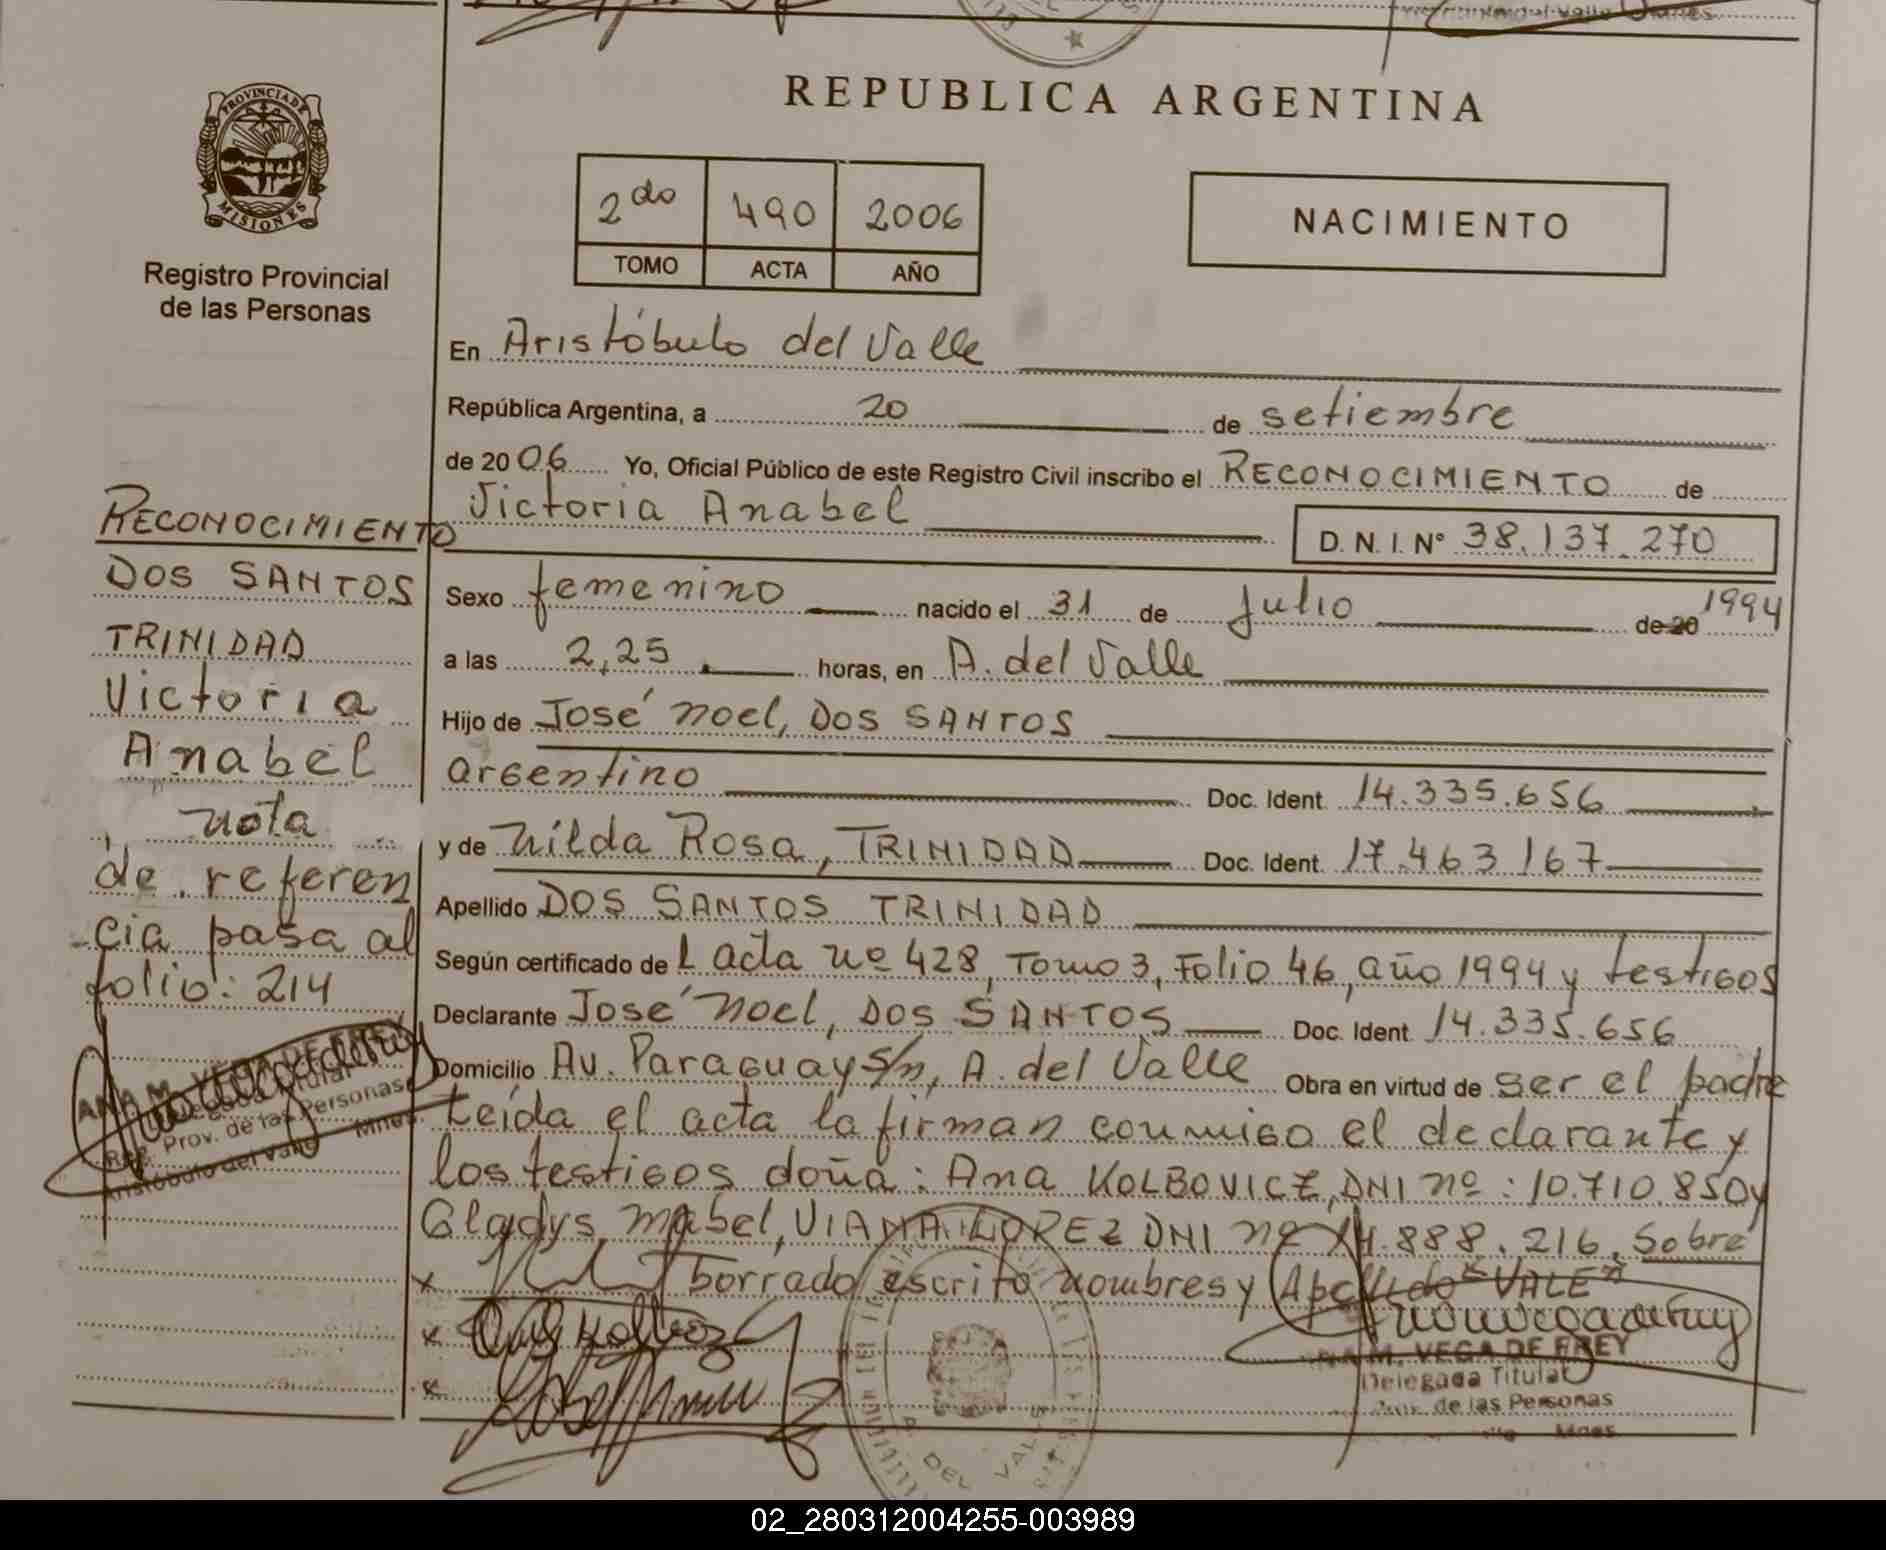 REPUBLICA ARGENTINA
PROVINCIA DE
MISIONES
Registro Provincial
de las Personas
2do 490 2006
TOMO ACTA AÑO
NACIMIENTO
En Aristóbulo del Valle
República Argentina, a 20 de setiembre
de 2006 Yo, Oficial Público de este Registro Civil inscribo el RECONOCIMIENTO de
Victoria Anabel D. N. I. Nº 38.137.270
Sexo femenino nacido el 31 de Julio de 20 1994
a las 2,25 horas, en A. del Valle
Hijo de José Noel, DOS SANTOS
argentino Doc. Ident. 14.335.656
y de Nilda Rosa, TRINIDAD Doc. Ident. 17.463.167
Apellido DOS SANTOS TRINIDAD
Según certificado de L acta nº 428, Tomo 3, Folio 46, año 1994 y testigos
Declarante José Noel, DOS SANTOS Doc. Ident. 14.335.656
Domicilio Av. Paraguay s/n, A. del Valle Obra en virtud de ser el padre
Leída el acta la firman conmigo el declarante y
los testigos doña: Ana KOLBOVICZ, DNI nº: 10.710.850 y
Gladys Mabel, VIANA LOPEZ DNI nº 14.888.216. Sobre
x borrado escrito nombres y Apellido "VALE"
x
x
ANA M. VEGA DE FREY
Delegada Titular
Prov. de las Personas
Mnes
DEL VALLE
RECONOCIMIENTO
DOS SANTOS
TRINIDAD
Victoria
Anabel
nota
de referen
cia pasa al
folio: 214
ANA M. VEGA DE FREY
Delegada Titular
Reg. Prov. de las Personas
Aristóbulo del Valle Mnes.
02_280312004255-003989